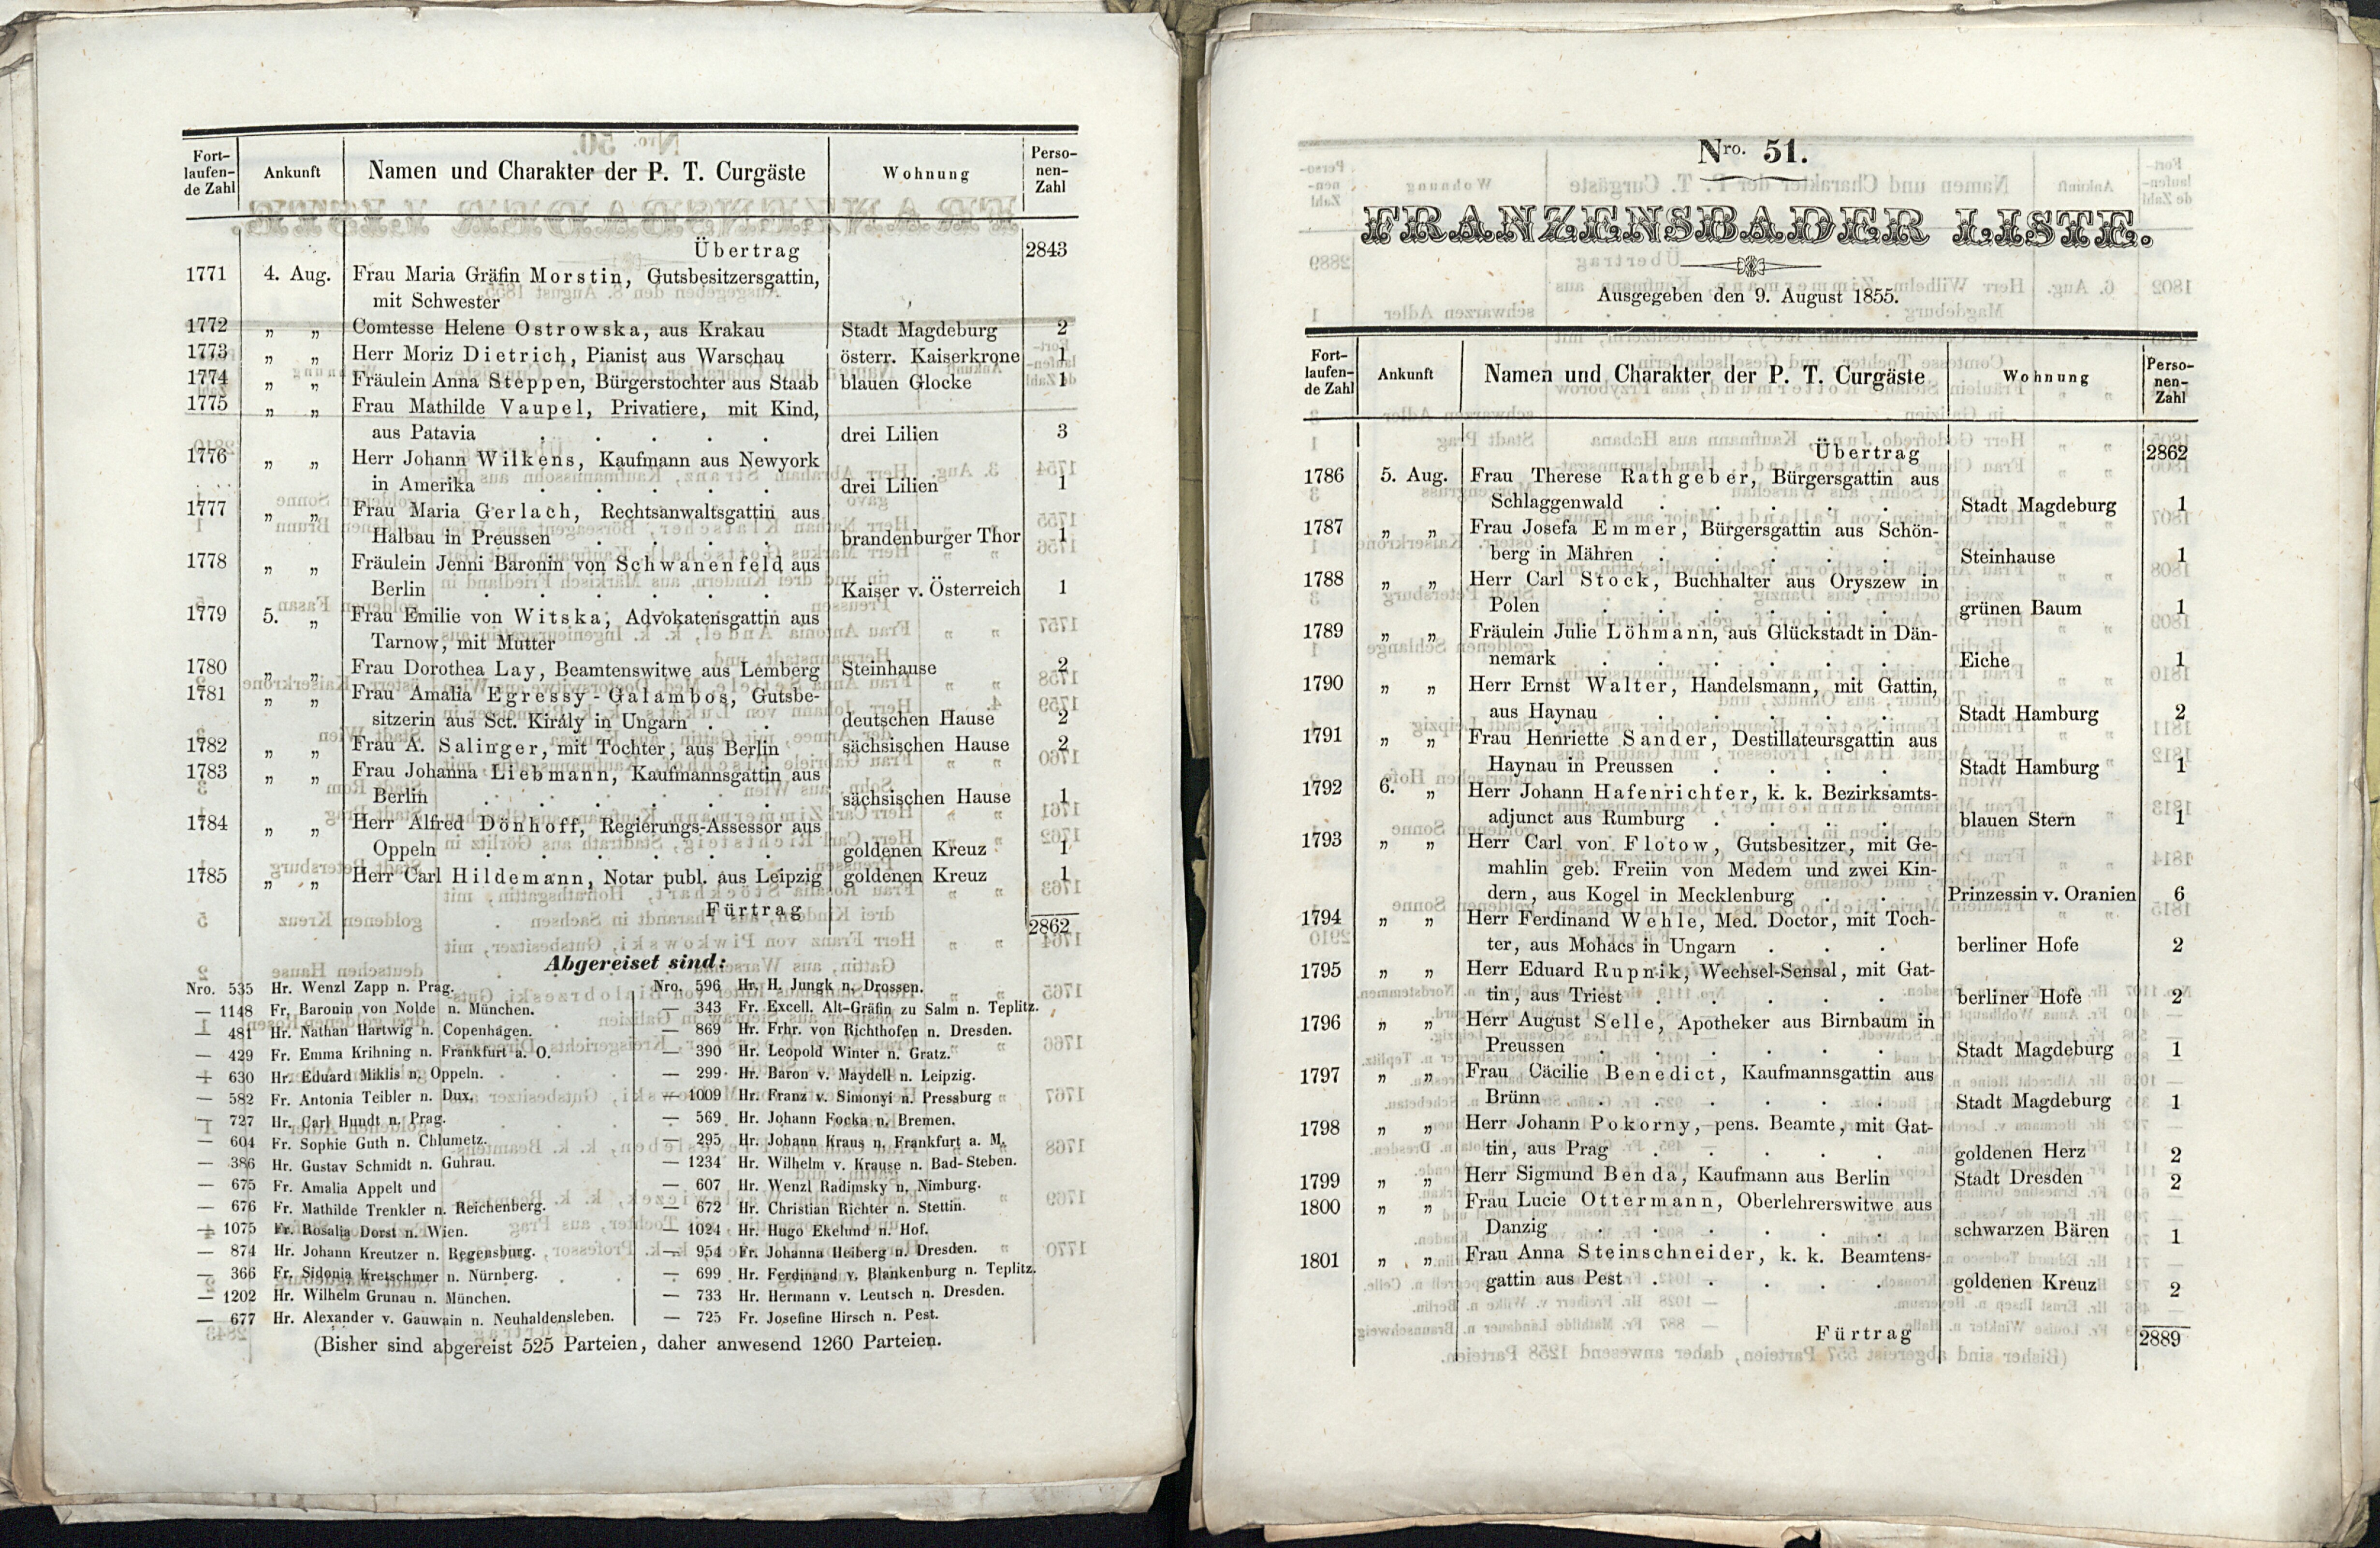 Fort-
laufen-
de Zahl
Ankunft
Namen und Charakter der P. T. Curgäste
Wohnung
Perso-
nen-
Zahl
Übertrag 2843
1771 4. Aug. Frau Maria Gräfin Morstin, Gutsbesitzersgattin,
mit Schwester
1772 „ „ Comtesse Helene Ostrowska, aus Krakau Stadt Magdeburg 2
1773 „ „ Herr Moriz Dietrich, Pianist aus Warschau österr. Kaiserkrone 1
1774 „ „ Fräulein Anna Steppen, Bürgerstochter aus Staab blauen Glocke 1
1775 „ „ Frau Mathilde Vaupel, Privatiere, mit Kind,
aus Patavia . . . . . drei Lilien 3
1776 „ „ Herr Johann Wilkens, Kaufmann aus Newyork
in Amerika . . . . . drei Lilien 1
1777 „ „ Frau Maria Gerlach, Rechtsanwaltsgattin aus
Halbau in Preussen . . . . brandenburger Thor 1
1778 „ „ Fräulein Jenni Baronin von Schwanenfeld aus
Berlin . . . . . . Kaiser v. Österreich 1
1779 5. „ Frau Emilie von Witska, Advokatensgattin aus
Tarnow, mit Mutter
1780 „ „ Frau Dorothea Lay, Beamtenswitwe aus Lemberg Steinhause 2
1781 „ „ Frau Amalia Egressy-Galambos, Gutsbe-
sitzerin aus Sct. Király in Ungarn . . deutschen Hause 2
1782 „ „ Frau A. Salinger, mit Tochter, aus Berlin sächsischen Hause 2
1783 „ „ Frau Johanna Liebmann, Kaufmannsgattin aus
Berlin . . . . . . sächsischen Hause 1
1784 „ „ Herr Alfred Dönhoff, Regierungs-Assessor aus
Oppeln . . . . . . goldenen Kreuz 1
1785 „ „ Herr Carl Hildemann, Notar publ. aus Leipzig goldenen Kreuz 1
Fürtrag 2862
Abgereiset sind:
Nro. 535 Hr. Wenzl Zapp n. Prag.
— 1148 Fr. Baronin von Nolde n. München.
— 481 Hr. Nathan Hartwig n. Copenhagen.
— 429 Fr. Emma Krihning n. Frankfurt a. O.
— 630 Hr. Eduard Miklis n. Oppeln.
— 582 Fr. Antonia Teibler n. Dux.
— 727 Hr. Carl Hundt n. Prag.
— 604 Fr. Sophie Guth n. Chlumetz.
— 386 Hr. Gustav Schmidt n. Guhrau.
— 675 Fr. Amalia Appelt und
— 676 Fr. Mathilde Trenkler n. Reichenberg.
— 1075 Fr. Rosalia Dorst n. Wien.
— 874 Hr. Johann Kreutzer n. Regensburg.
— 366 Fr. Sidonia Kretschmer n. Nürnberg.
— 1202 Hr. Wilhelm Grunau n. München.
— 677 Hr. Alexander v. Gauwain n. Neuhaldensleben.
Nro. 596 Hr. H. Jungk n. Drossen.
— 343 Fr. Excell. Alt-Gräfin zu Salm n. Teplitz.
— 869 Hr. Frhr. von Richthofen n. Dresden.
— 390 Hr. Leopold Winter n. Gratz.
— 299 Hr. Baron v. Maydell n. Leipzig.
— 1009 Hr. Franz v. Simonyi n. Pressburg
— 569 Hr. Johann Focka n. Bremen.
— 295 Hr. Johann Kraus n. Frankfurt a. M.
— 1234 Hr. Wilhelm v. Krause n. Bad-Steben.
— 607 Hr. Wenzl Radimsky n. Nimburg.
— 672 Hr. Christian Richter n. Stettin.
— 1024 Hr. Hugo Ekelund n. Hof.
— 954 Fr. Johanna Heiberg n. Dresden.
— 699 Hr. Ferdinand v. Blankenburg n. Teplitz.
— 733 Hr. Hermann v. Leutsch n. Dresden.
— 725 Fr. Josefine Hirsch n. Pest.
(Bisher sind abgereist 525 Parteien, daher anwesend 1260 Parteien.
Nro. 51.
FRANZENSBADER LISTE.
Ausgegeben den 9. August 1855.
Fort-
laufen-
de Zahl
Ankunft
Namen und Charakter der P. T. Curgäste
Wohnung
Perso-
nen-
Zahl
Übertrag 2862
1786 5. Aug. Frau Therese Rathgeber, Bürgersgattin aus
Schlaggenwald . . . . . Stadt Magdeburg 1
1787 „ „ Frau Josefa Emmer, Bürgersgattin aus Schön-
berg in Mähren . . . . . Steinhause 1
1788 „ „ Herr Carl Stock, Buchhalter aus Oryszew in
Polen . . . . . . grünen Baum 1
1789 „ „ Fräulein Julie Löhmann, aus Glückstadt in Dän-
nemark . . . . . . Eiche 1
1790 „ „ Herr Ernst Walter, Handelsmann, mit Gattin,
aus Haynau . . . . . Stadt Hamburg 2
1791 „ „ Frau Henriette Sander, Destillateursgattin aus
Haynau in Preussen . . . . Stadt Hamburg 1
1792 6. „ Herr Johann Hafenrichter, k. k. Bezirksamts-
adjunct aus Rumburg . . . . blauen Stern 1
1793 „ „ Herr Carl von Flotow, Gutsbesitzer, mit Ge-
mahlin geb. Freiin von Medem und zwei Kin-
dern, aus Kogel in Mecklenburg . . Prinzessin v. Oranien 6
1794 „ „ Herr Ferdinand Wehle, Med. Doctor, mit Toch-
ter, aus Mohács in Ungarn . . . berliner Hofe 2
1795 „ „ Herr Eduard Rupnik, Wechsel-Sensal, mit Gat-
tin, aus Triest . . . . . berliner Hofe 2
1796 „ „ Herr August Selle, Apotheker aus Birnbaum in
Preussen . . . . . . Stadt Magdeburg 1
1797 „ „ Frau Cäcilie Benedict, Kaufmannsgattin aus
Brünn . . . . . . Stadt Magdeburg 1
1798 „ „ Herr Johann Pokorny, pens. Beamte, mit Gat-
tin, aus Prag . . . . . goldenen Herz 2
1799 „ „ Herr Sigmund Benda, Kaufmann aus Berlin Stadt Dresden 2
1800 „ „ Frau Lucie Ottermann, Oberlehrerswitwe aus
Danzig . . . . . . schwarzen Bären 1
1801 „ „ Frau Anna Steinschneider, k. k. Beamtens-
gattin aus Pest . . . . . goldenen Kreuz 2
Fürtrag 2889